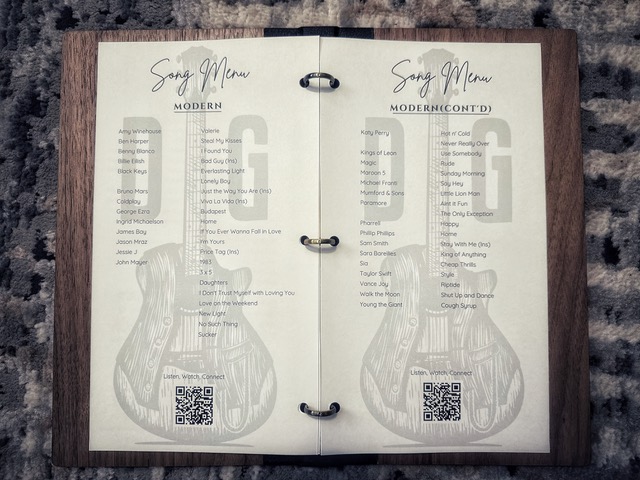 Song Menu
MODERN
D G
Amy Winehouse Valerie
Ben Harper Steal My Kisses
Benny Blanco I Found You
Billie Eilish Bad Guy (Ins)
Black Keys Everlasting Light
Lonely Boy
Bruno Mars Just the Way You Are (Ins)
Coldplay Viva La Vida (Ins)
George Ezra Budapest
Ingrid Michaelson Home
James Bay If You Ever Wanna Fall in Love
Jason Mraz I'm Yours
Jessie J Price Tag (Ins)
John Mayer 1983
3 x 5
Daughters
I Don't Trust Myself with Loving You
Love on the Weekend
New Light
No Such Thing
Sucker
Listen, Watch, Connect
Song Menu
MODERN(CONT'D)
D G
Katy Perry Hot n' Cold
Never Really Over
Kings of Leon Use Somebody
Magic Rude
Maroon 5 Sunday Morning
Michael Franti Say Hey
Mumford & Sons Little Lion Man
Paramore Aint it Fun
The Only Exception
Pharrell Happy
Phillip Phillips Home
Sam Smith Stay With Me (Ins)
Sara Bareilles King of Anything
Sia Cheap Thrills
Taylor Swift Style
Vance Joy Riptide
Walk the Moon Shut Up and Dance
Young the Giant Cough Syrup
Listen, Watch, Connect